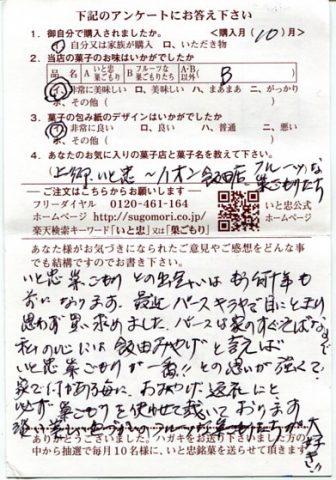 下記のアンケートにお答え下さい
1. 御自分で購入されましたか。 <購入月(10)月>
イ、自分又は家族が購入 ロ、いただき物
2. 当店の菓子のお味はいかがでしたか
品名 A いと忠巣ごもり B フルーツな巣ごもりたち A・B以外 B
イ、非常に美味しい ロ、美味しい ハ、まあまあ ニ、がっかり
ホ、その他( )
3. 菓子の包み紙のデザインはいかがでしたか
イ、非常に良い ロ、良い ハ、普通 ニ、悪い
ホ、その他( )
4. あなたのお気に入りの菓子店と菓子名を教えて下さい。
いと忠 ~ イオン飯田店、フルーツな
巣ごもりたち
ご注文はこちらからお願いします
フリーダイヤル 0120-461-164
ホームページ http://sugomori.co.jp/
楽天検索キーワード「いと忠」又は「巣ごもり」
いと忠公式
ホームページ
あなた様がお気づきになられたご意見やご感想をどんな事
でも結構ですのでお書き下さい。
いと忠 巣ごもり との出会いは もう何十年も
前になります。最近 バースキラヤで目にとまり
思わず買い求めました。バースは家のすぐそばなので
私の心には 飯田みやげ と言えば
いと忠巣ごもりが一番!! との思いが強くて
家で何かある毎に、おみやげ、返礼にと
必ず 巣ごもりを使わせて戴いております
フルーツな巣ごもりたちが 大好き!!
ありがとうございました。ハガキをお送り下さいました方の
中から抽選で毎月10名様に、いと忠銘菓を送らせて頂きます